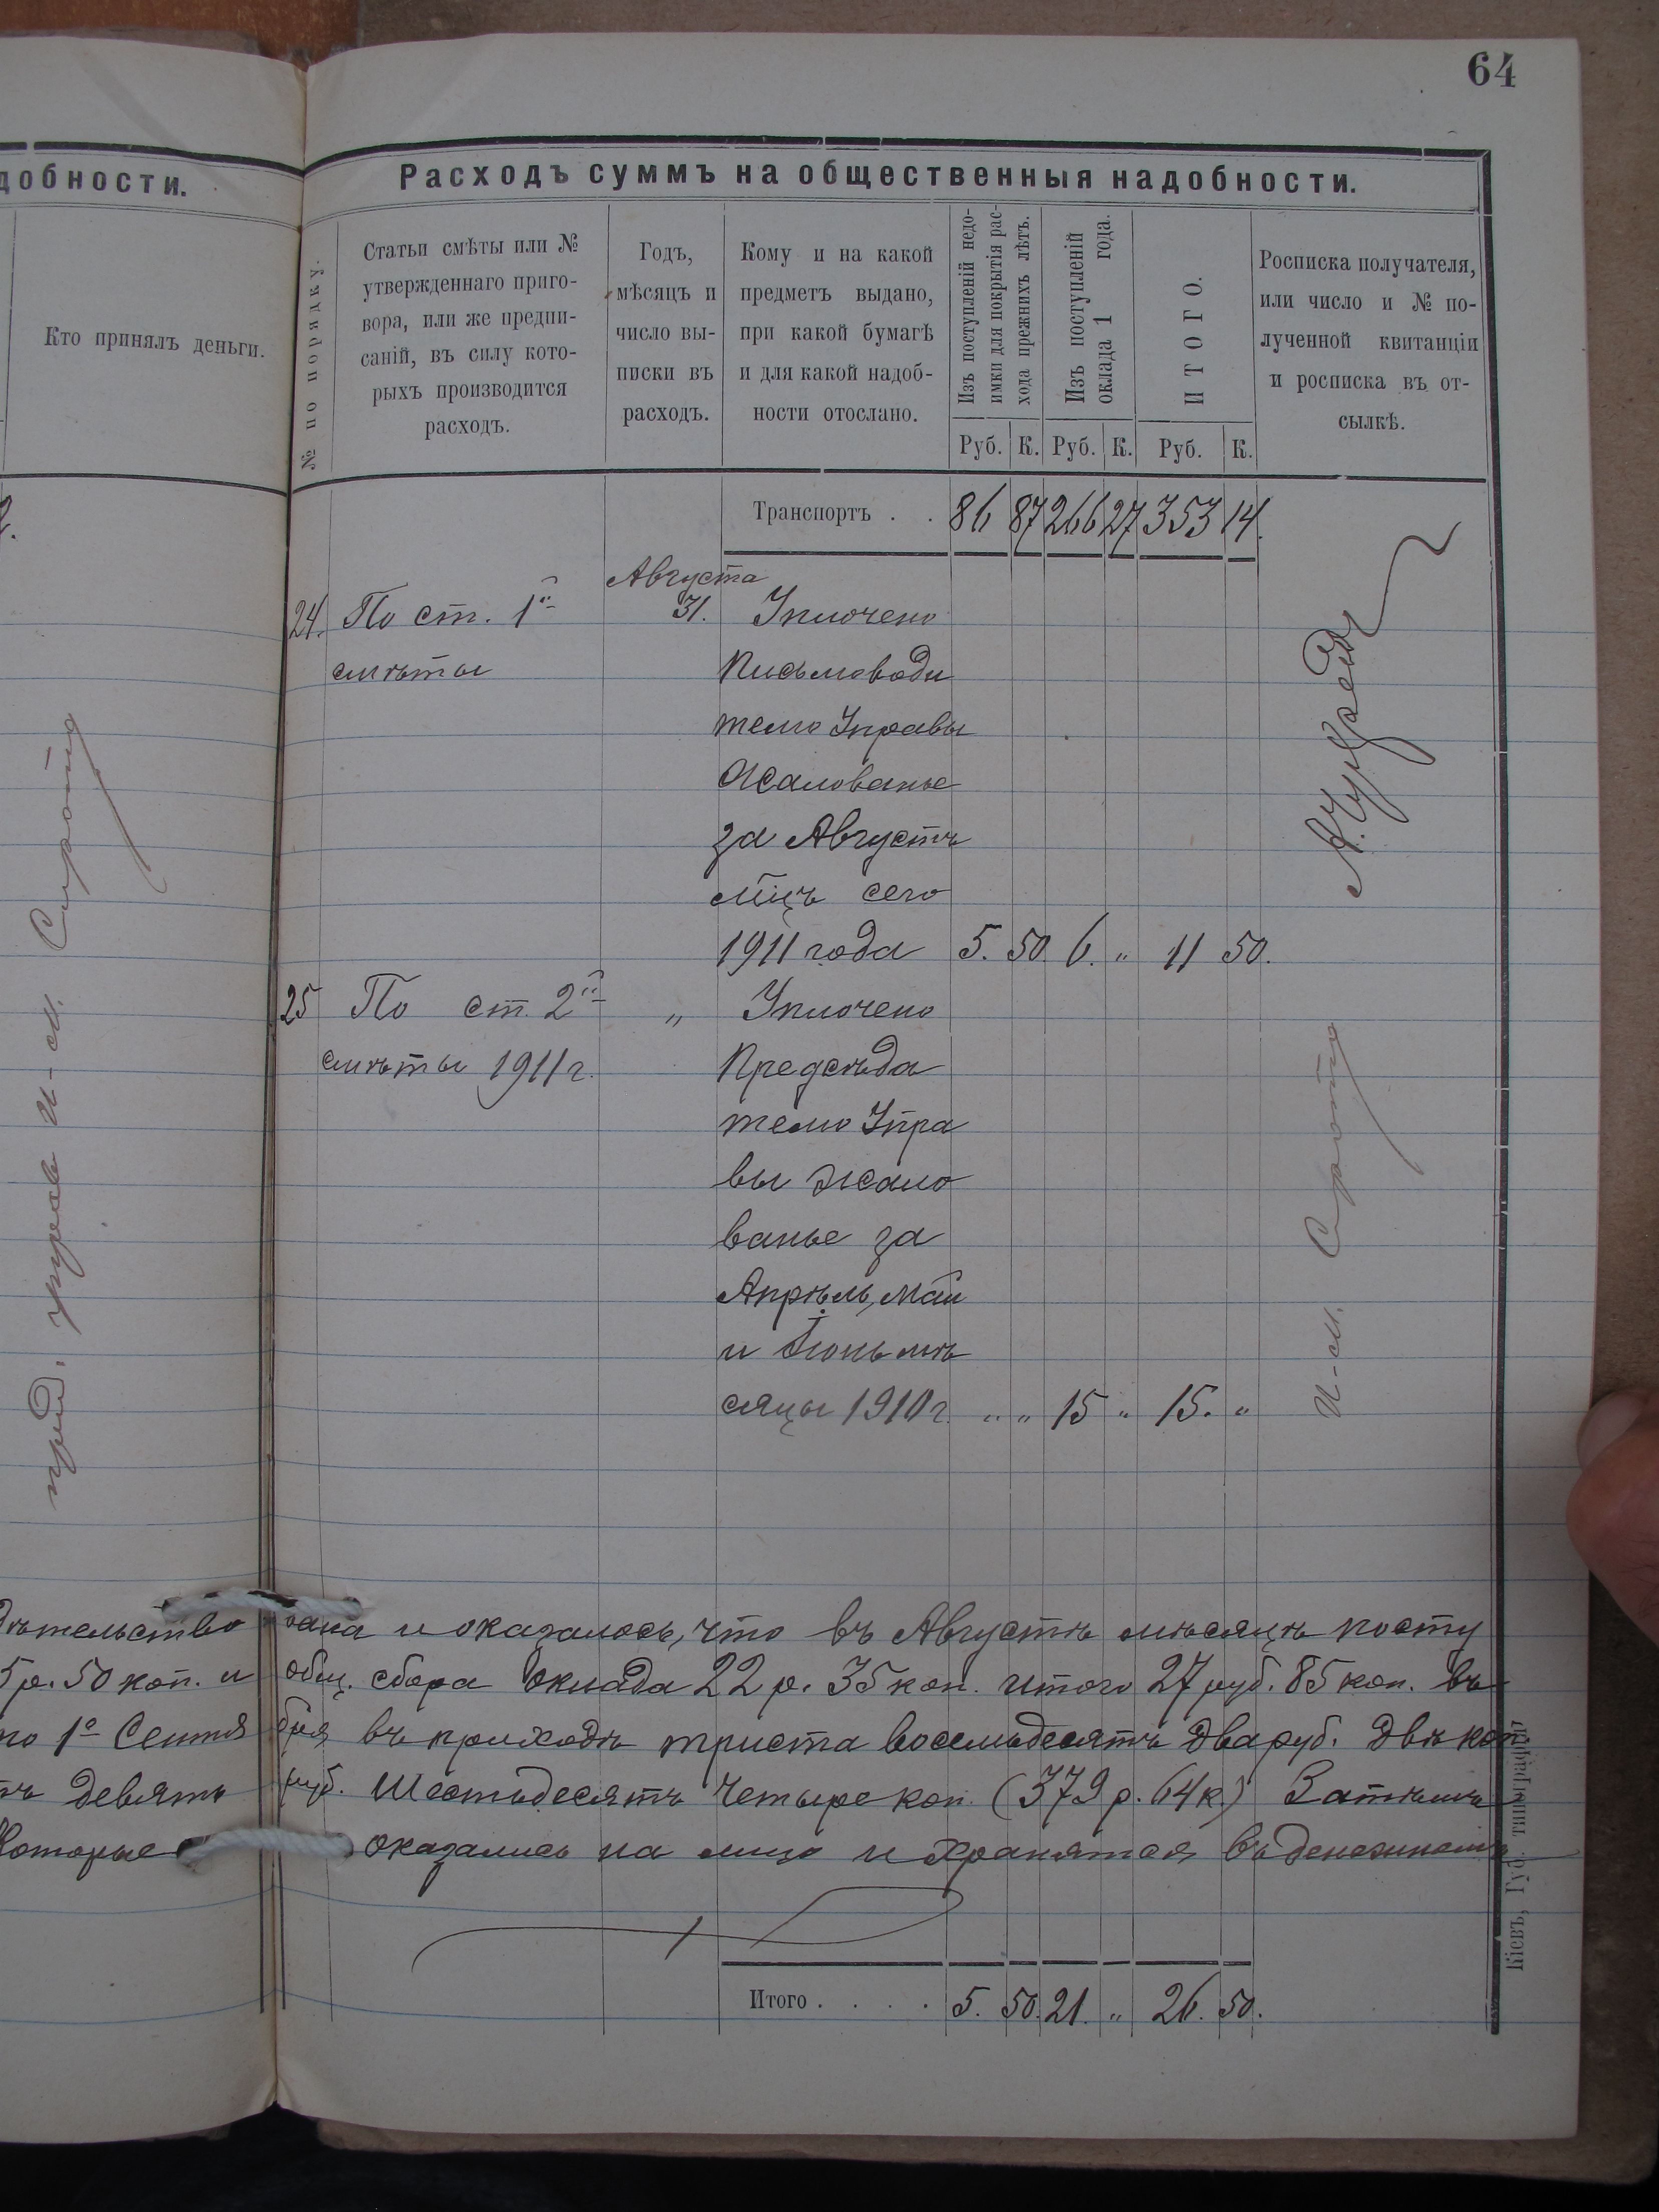 64
добности.
Кто принялъ деньги.
Расходъ суммъ на общественныя надобности.
№ по порядку.
Статьи смѣты или №
утвержденнаго приго-
вора, или же предпи-
саній, въ силу кото-
рыхъ производится
расходъ.
Годъ,
мѣсяцъ и
число вы-
писки въ
расходъ.
Кому и на какой
предметъ выдано,
при какой бумагѣ
и для какой надоб-
ности отослано.
Изъ поступленій недо-
имки для покрытія рас-
хода прежнихъ лѣтъ.
Изъ поступленій
оклада 1 года.
ИТОГО.
Росписка получателя,
или число и № по-
лученной квитанціи
и росписка въ от-
сылкѣ.
Руб. К. Руб. К. Руб. К.
Транспортъ . . 86 87 266 27 353 14.
Августа
24. По ст. 1й 31. Уплочено
смѣты Письмоводи
телю Управы
жалованье
за Августъ
мцъ сего
1911 года 5. 50 6. „ 11 50.
25 По ст. 2й „ Уплочено
смѣты 1911 г. Предсѣда
телю Упра
вы жало
ванье за
Апрѣль, Май
и Іюнь мѣ
сяцы 1910 г. „ „ 15 „ 15. „
И-М. Сирота
И-М. Сирота
дѣтельство вана и оказалось, что въ Августѣ мѣсяцѣ посту
5 р. 50 коп. и общ. сбора оклада 22 р. 35 коп. итого 27 руб. 85 коп. въ
по 1е Сентя бря въ приходѣ триста восемьдесятъ два руб. двѣ коп
тъ девять руб. Шестьдесятъ четыре коп. (379 р. 64 к.) Затѣмъ
Которые оказались на лицо и хранятся въ денежномъ
Итого . . . . 5. 50. 21. „ 26. 50.
Кіевъ, Губ. типографія